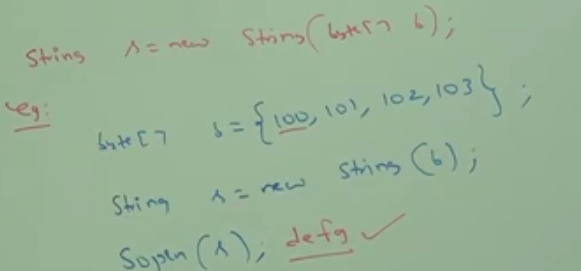 String s = new String(byte[] b);
eg:
byte[] b = {100, 101, 102, 103};
String s = new String(b);
Sopln(s); defg ✓